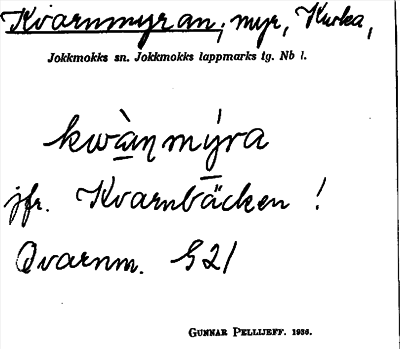 Kvarnmyran, myr, Kurka,
Jokkmokks sn. Jokkmokks lappmarks tg. Nb l.
kwàṉmýra
jfr. Kvarnbäcken !
Qvarnm. G21
GUNNAR PELLIJEFF. 1936.